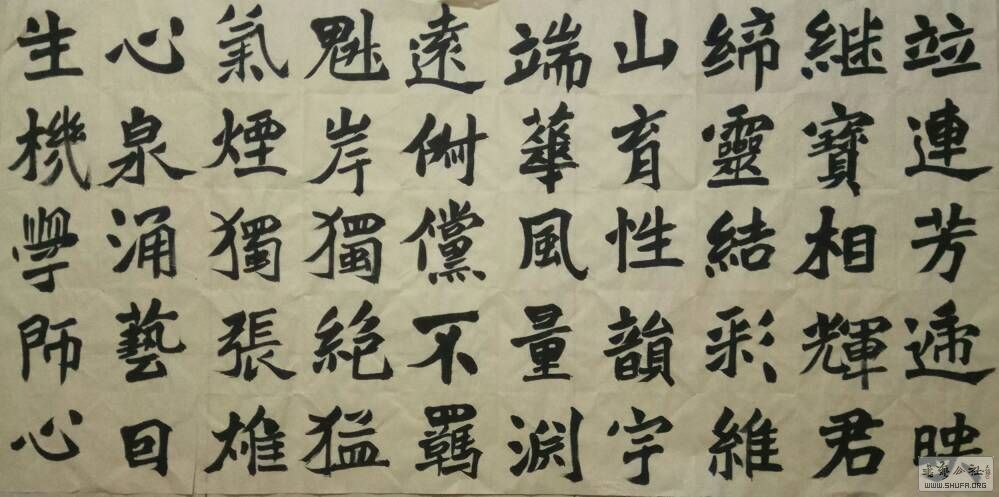 竝連芳遞映
継寶相輝君
締靈結彩維
山育性韻宇
端華風量淵
遠倜儻不羈
魁岸獨絕猛
氣煙獨張雄
心泉涌藝目
生機學師心
WWW.SHUFA.ORG